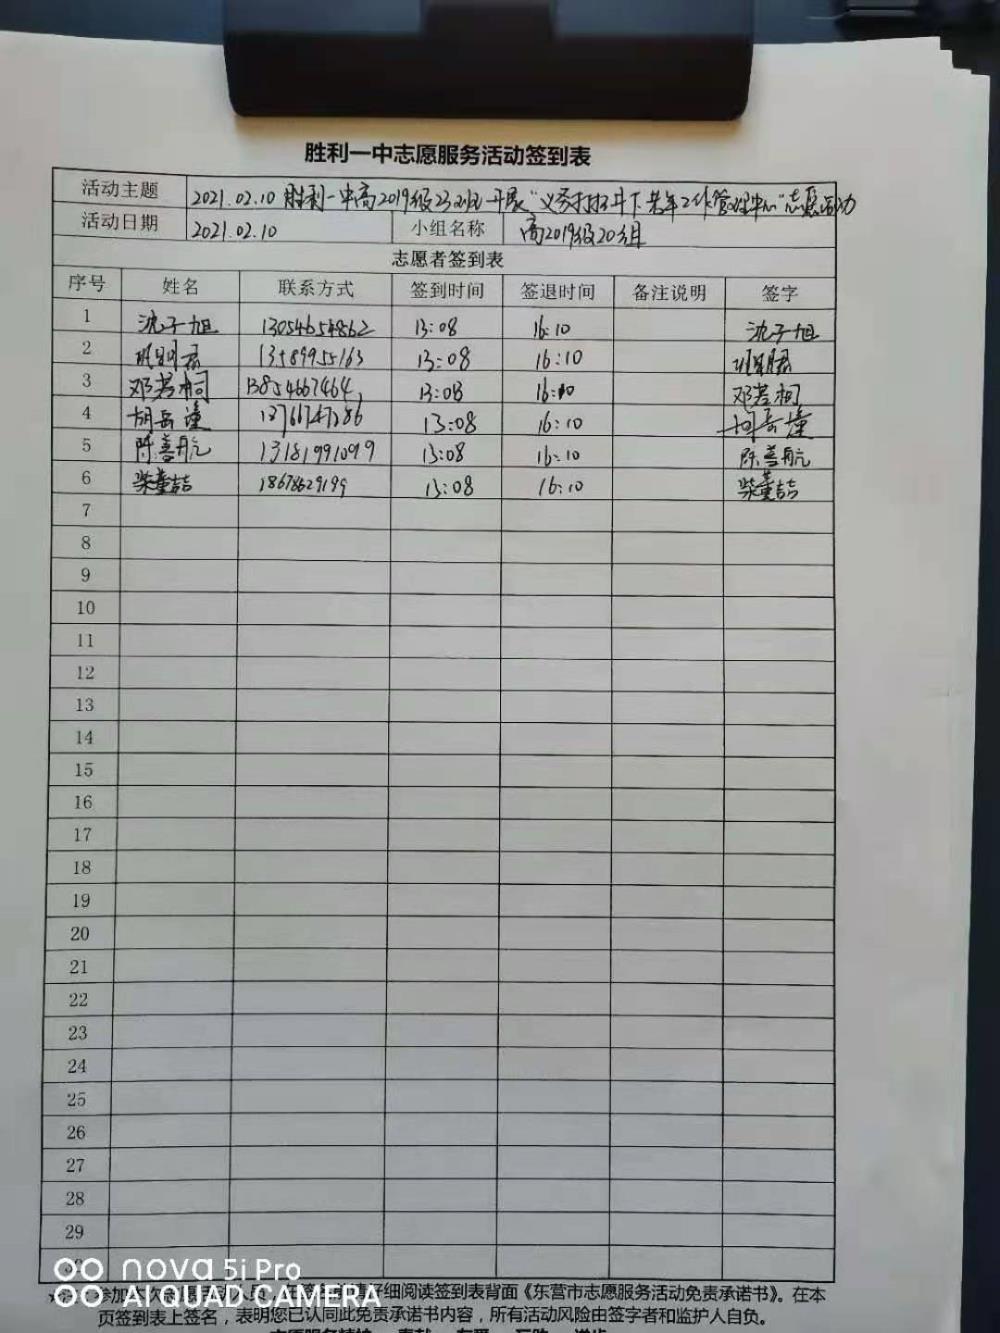 胜利一中志愿服务活动签到表
活动主题 2021.02.10 胜利一中高2019级23班开展"义务打扫井下老年工作管理中心"志愿活动
活动日期 2021.02.10 小组名称 高2019级20组
志愿者签到表
序号 姓名 联系方式 签到时间 签退时间 备注说明 签字
1 沈子旭 13054654862 13:08 16:10 沈子旭
2 13589955163 13:08 16:10
3 邓若桐 13854667464 13:08 16:10 邓若桐
4 胡岳潼 13:08 16:10 胡岳潼
5 陈善航 13181991099 13:08 16:10 陈善航
6 柴董喆 18678629199 13:08 16:10 柴董喆
7
8
9
10
11
12
13
14
15
16
17
18
19
20
21
22
23
24
25
26
27
28
29
nova 5i Pro
AI QUAD CAMERA
参加 仔细阅读签到表背面《东营市志愿服务活动免责承诺书》。在本
页签到表上签名，表明您已认同此免责承诺书内容，所有活动风险由签字者和监护人自负。